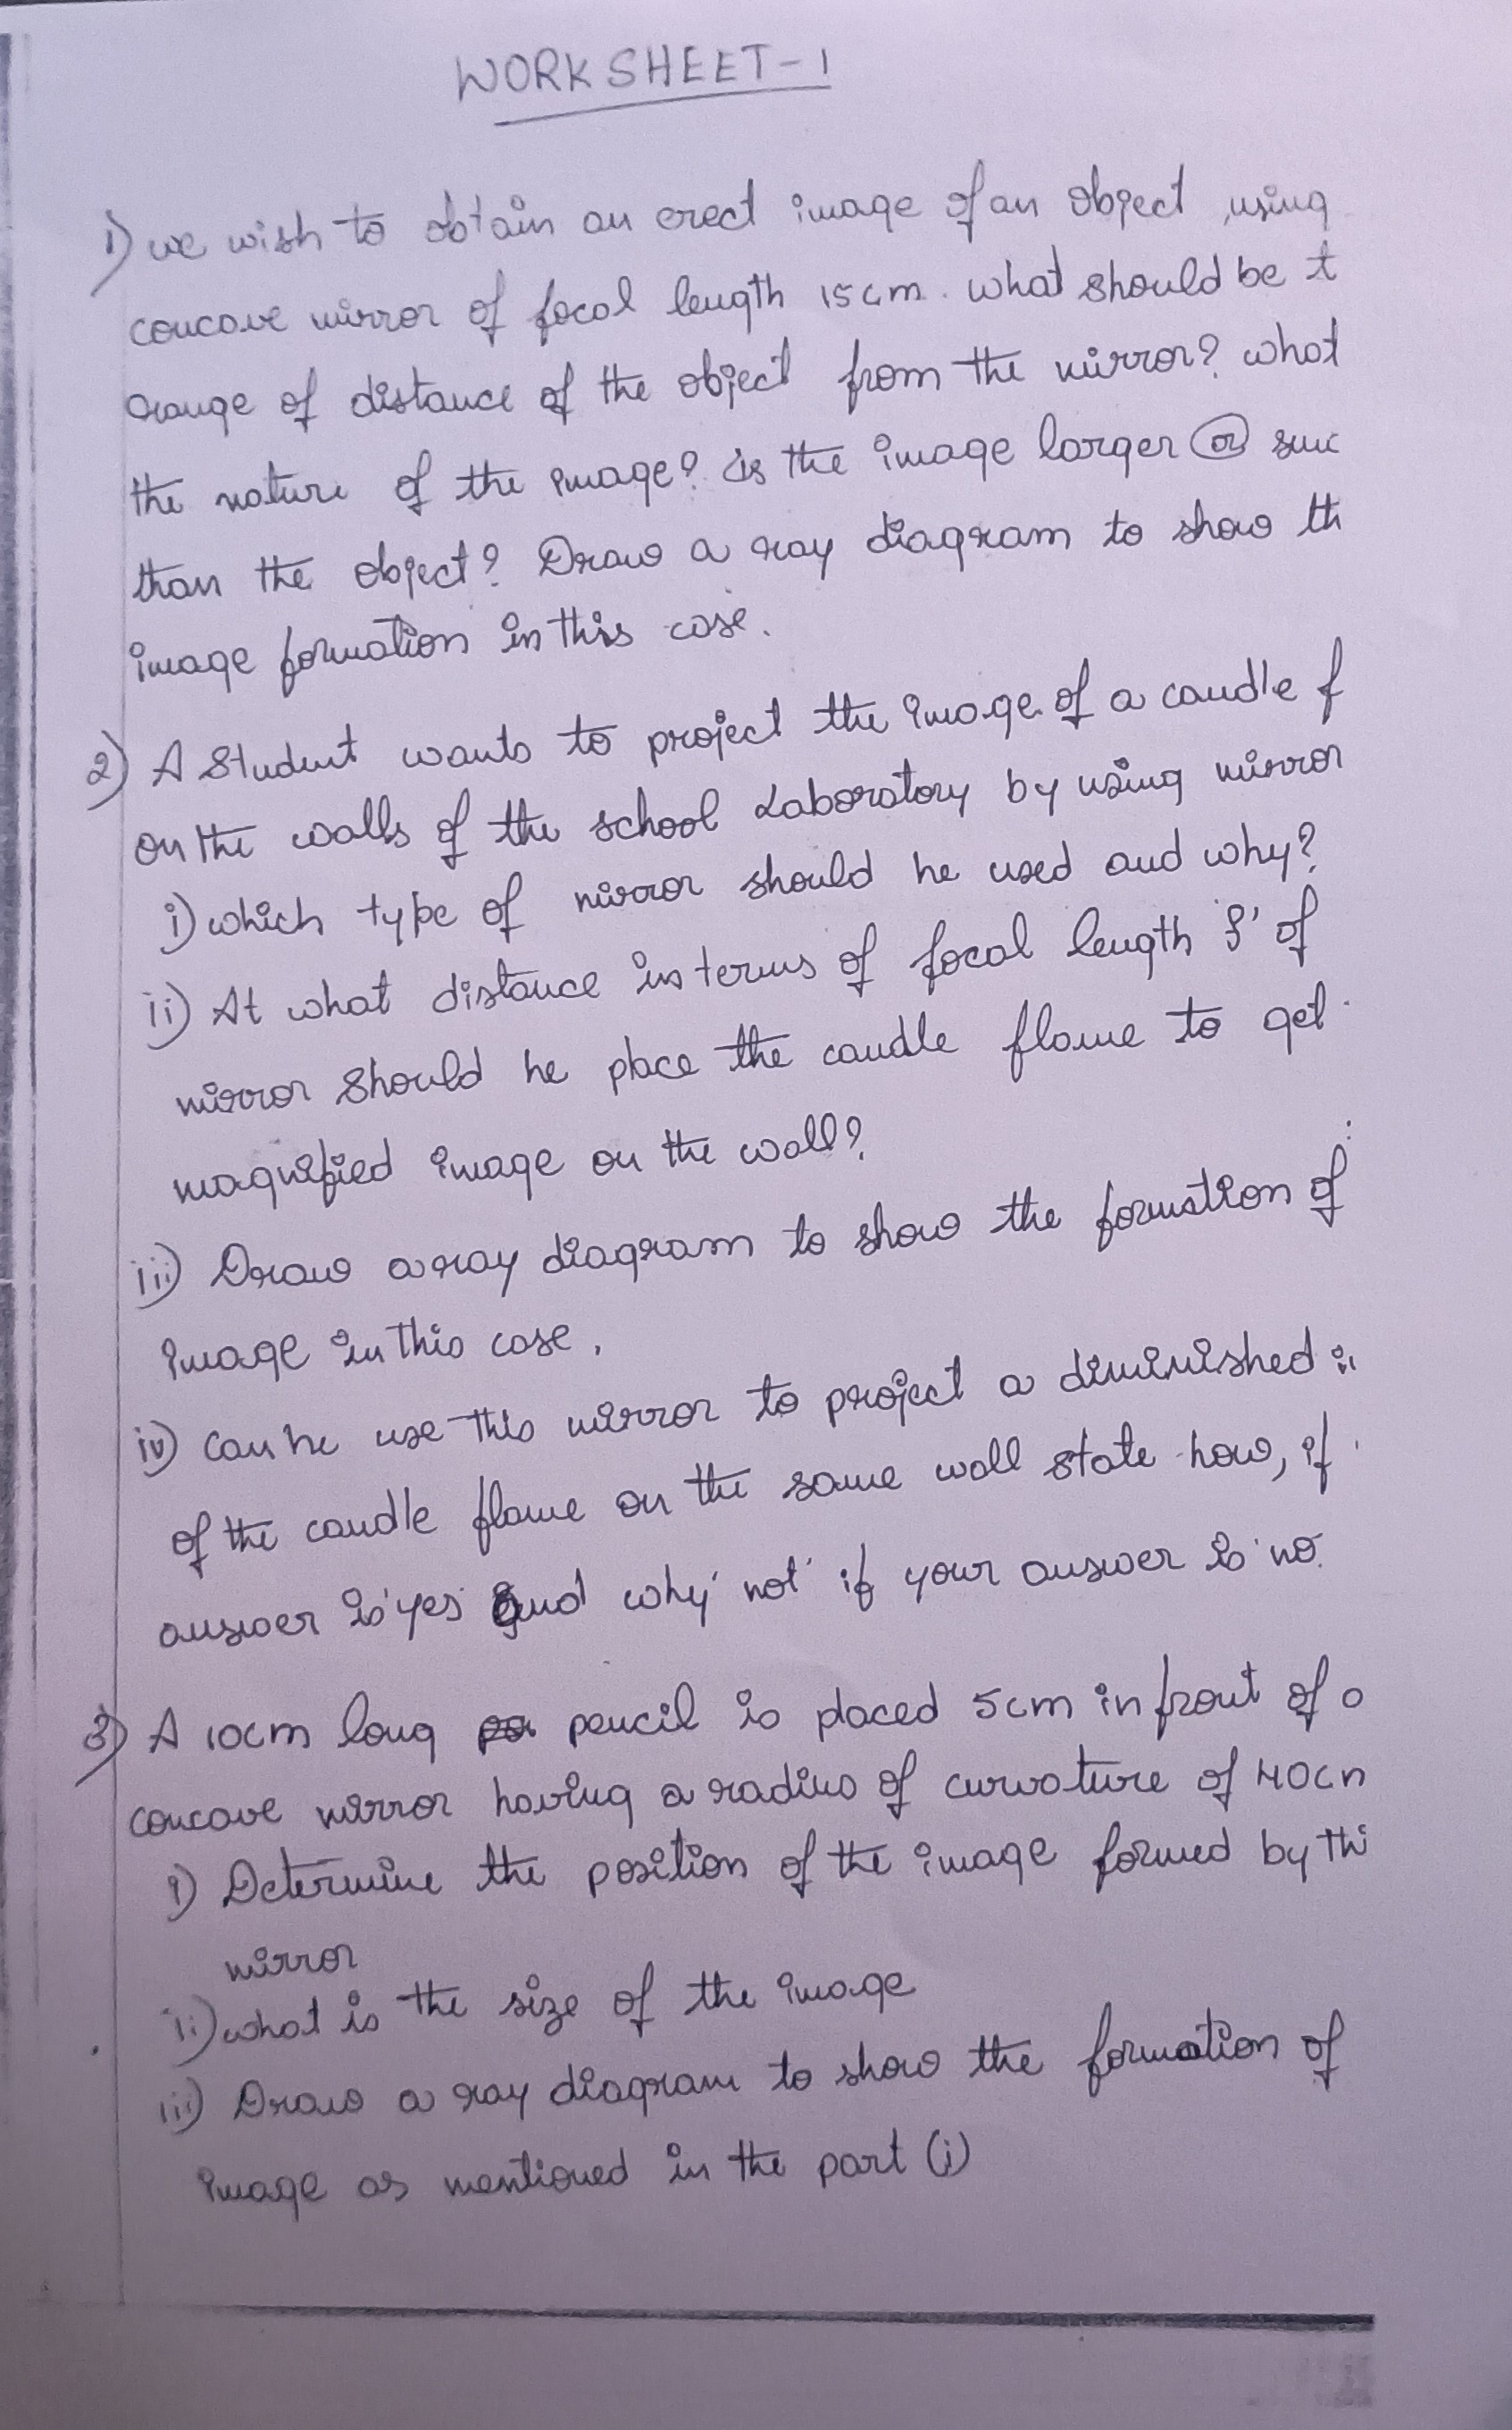 WORKSHEET-1
1) we wish to obtain an erect image of an object, using
concave mirror of focal length 15cm. what should be t
range of distance of the object from the mirror? what
the nature of the image? is the image larger or
than the object? Draw a ray diagram to show th
image formation in this case.
2) A Student wants to project the image of a candle f
on the walls of the school Laboratory by using mirror
i) which type of mirror should he used and why?
ii) At what distance in terms of focal length 'f' of
mirror should he place the candle flame to get
magnified image on the wall?
iii) Draw a ray diagram to show the formation of
image in this case.
iv) can he use this mirror to project a diminished
of the candle flame on the same wall state how, if
answer is 'yes' and why 'not' if your answer is 'no.
3) A 10cm long pencil is placed 5cm in front of a
concave mirror having a radius of curvature of 40cm
i) Determine the position of the image formed by th
mirror
ii) what is the size of the image
iii) Draw a ray diagram to show the formation of
image as mentioned in the part (i)